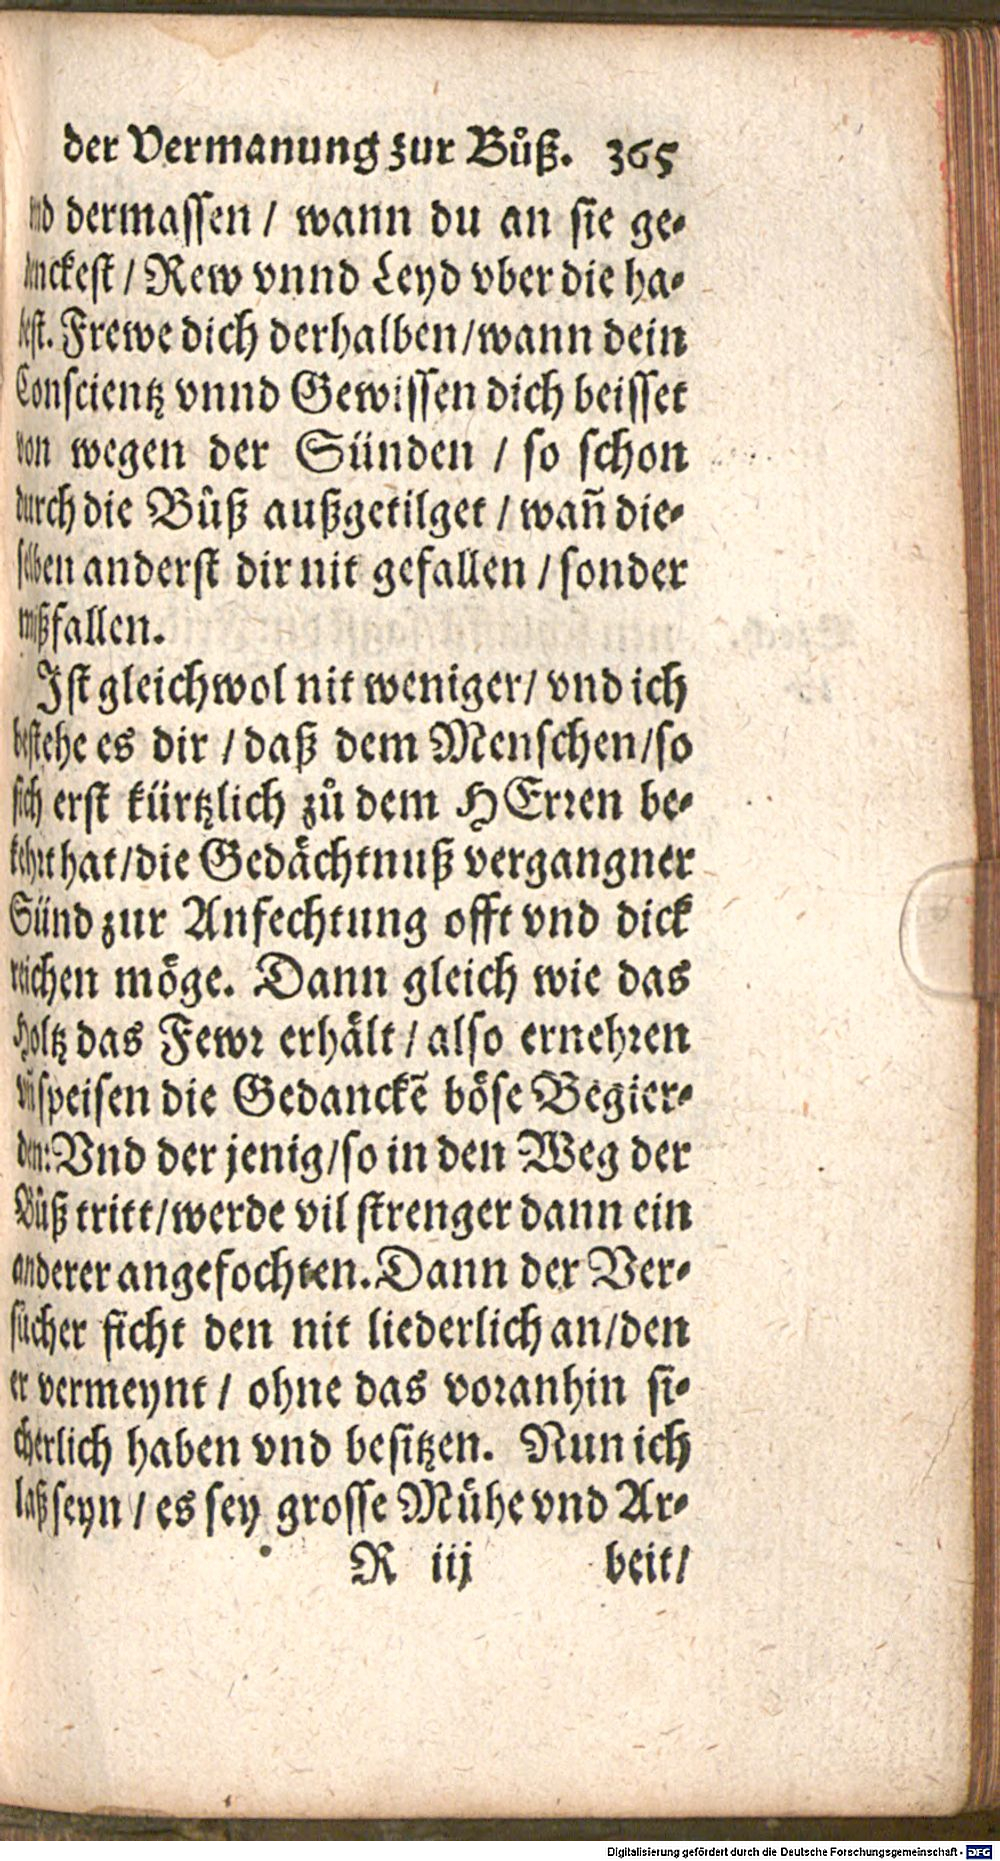 der Vermanung zur Bůß. 365
vnd dermassen / wann du an sie ge-
denckest / Rew vnnd Leyd vber die ha-
best. Frewe dich derhalben / wann dein
Conscientz vnnd Gewissen dich beisset
von wegen der Sünden / so schon
durch die Bůß außgetilget / wañ die-
selben anderst dir nit gefallen / sonder
mißfallen.
Ist gleichwol nit weniger / vnd ich
bestehe es dir / daß dem Menschen / so
sich erst kürtzlich zů dem HErren be-
kehrt hat / die Gedächtnuß vergangner
Sünd zur Anfechtung offt vnd dick
reichen möge. Dann gleich wie das
Holtz das Fewr erhält / also ernehren
vñ speisen die Gedanckẽ böse Begier-
den: Vnd der jenig / so in den Weg der
Bůß tritt / werde vil strenger dann ein
anderer angefochten. Dann der Ver-
sücher ficht den nit liederlich an / den
er vermeynt / ohne das voranhin si-
cherlich haben vnd besitzen. Nun ich
laß seyn / es sey grosse Mühe vnd Ar-
R iij beit /
Digitalisierung gefördert durch die Deutsche Forschungsgemeinschaft - DFG